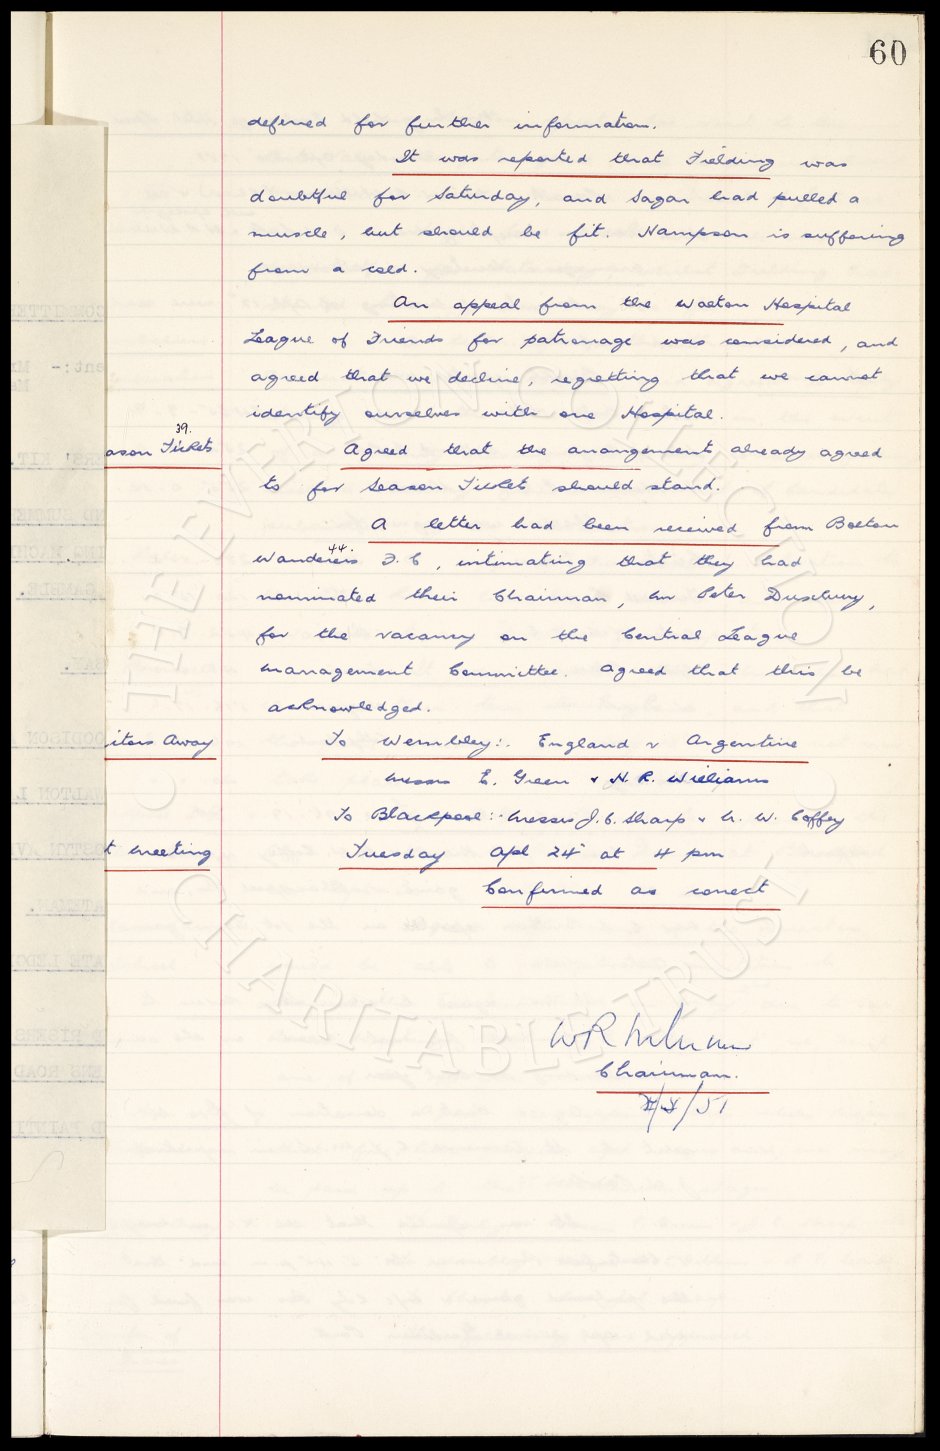 60
deferred for further information.
It was reported that Fielding was
doubtful for Saturday, and Sagar had pulled a
muscle, but should be fit. Hampson is suffering
from a cold.
An appeal from the Walton Hospital
League of Friends for patronage was considered, and
agreed that we decline, regretting that we cannot
identify ourselves with one Hospital.
39.
ason Tickets Agreed that the arrangements already agreed
to for Season Tickets should stand.
A letter had been received from Bolton
44.
Wanderers F.C, intimating that they had
nominated their Chairman, Mr Peter Duxbury,
for the vacancy on the Central League
Management Committee. Agreed that this be
acknowledged.
itors Away To Wembley:. England v Argentine
Messrs E. Green & H. R. Williams
To Blackpool:. Messrs J. C. Sharp & W. Coffey
t Meeting Tuesday Apl 24 at 4 pm
Confirmed as correct
W R
Chairman.
/51
THE EVERTON COLLECTION
CHARITABLE TRUST